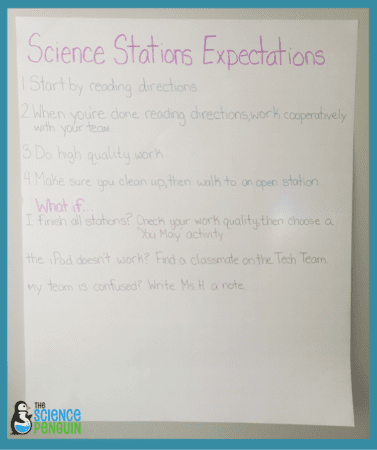 Science Stations Expectations
1. Start by reading directions
2. When you're done reading directions, work cooperatively
with your team
3. Do high quality work
4. Make sure you clean up, then walk to an open station
What if...
I finish all stations? Check your work quality, then choose a
"You May" activity
the iPad doesn't work? Find a classmate on the Tech Team
My team is confused? Write Ms. H a note
THE
SCIENCE
PENGUIN